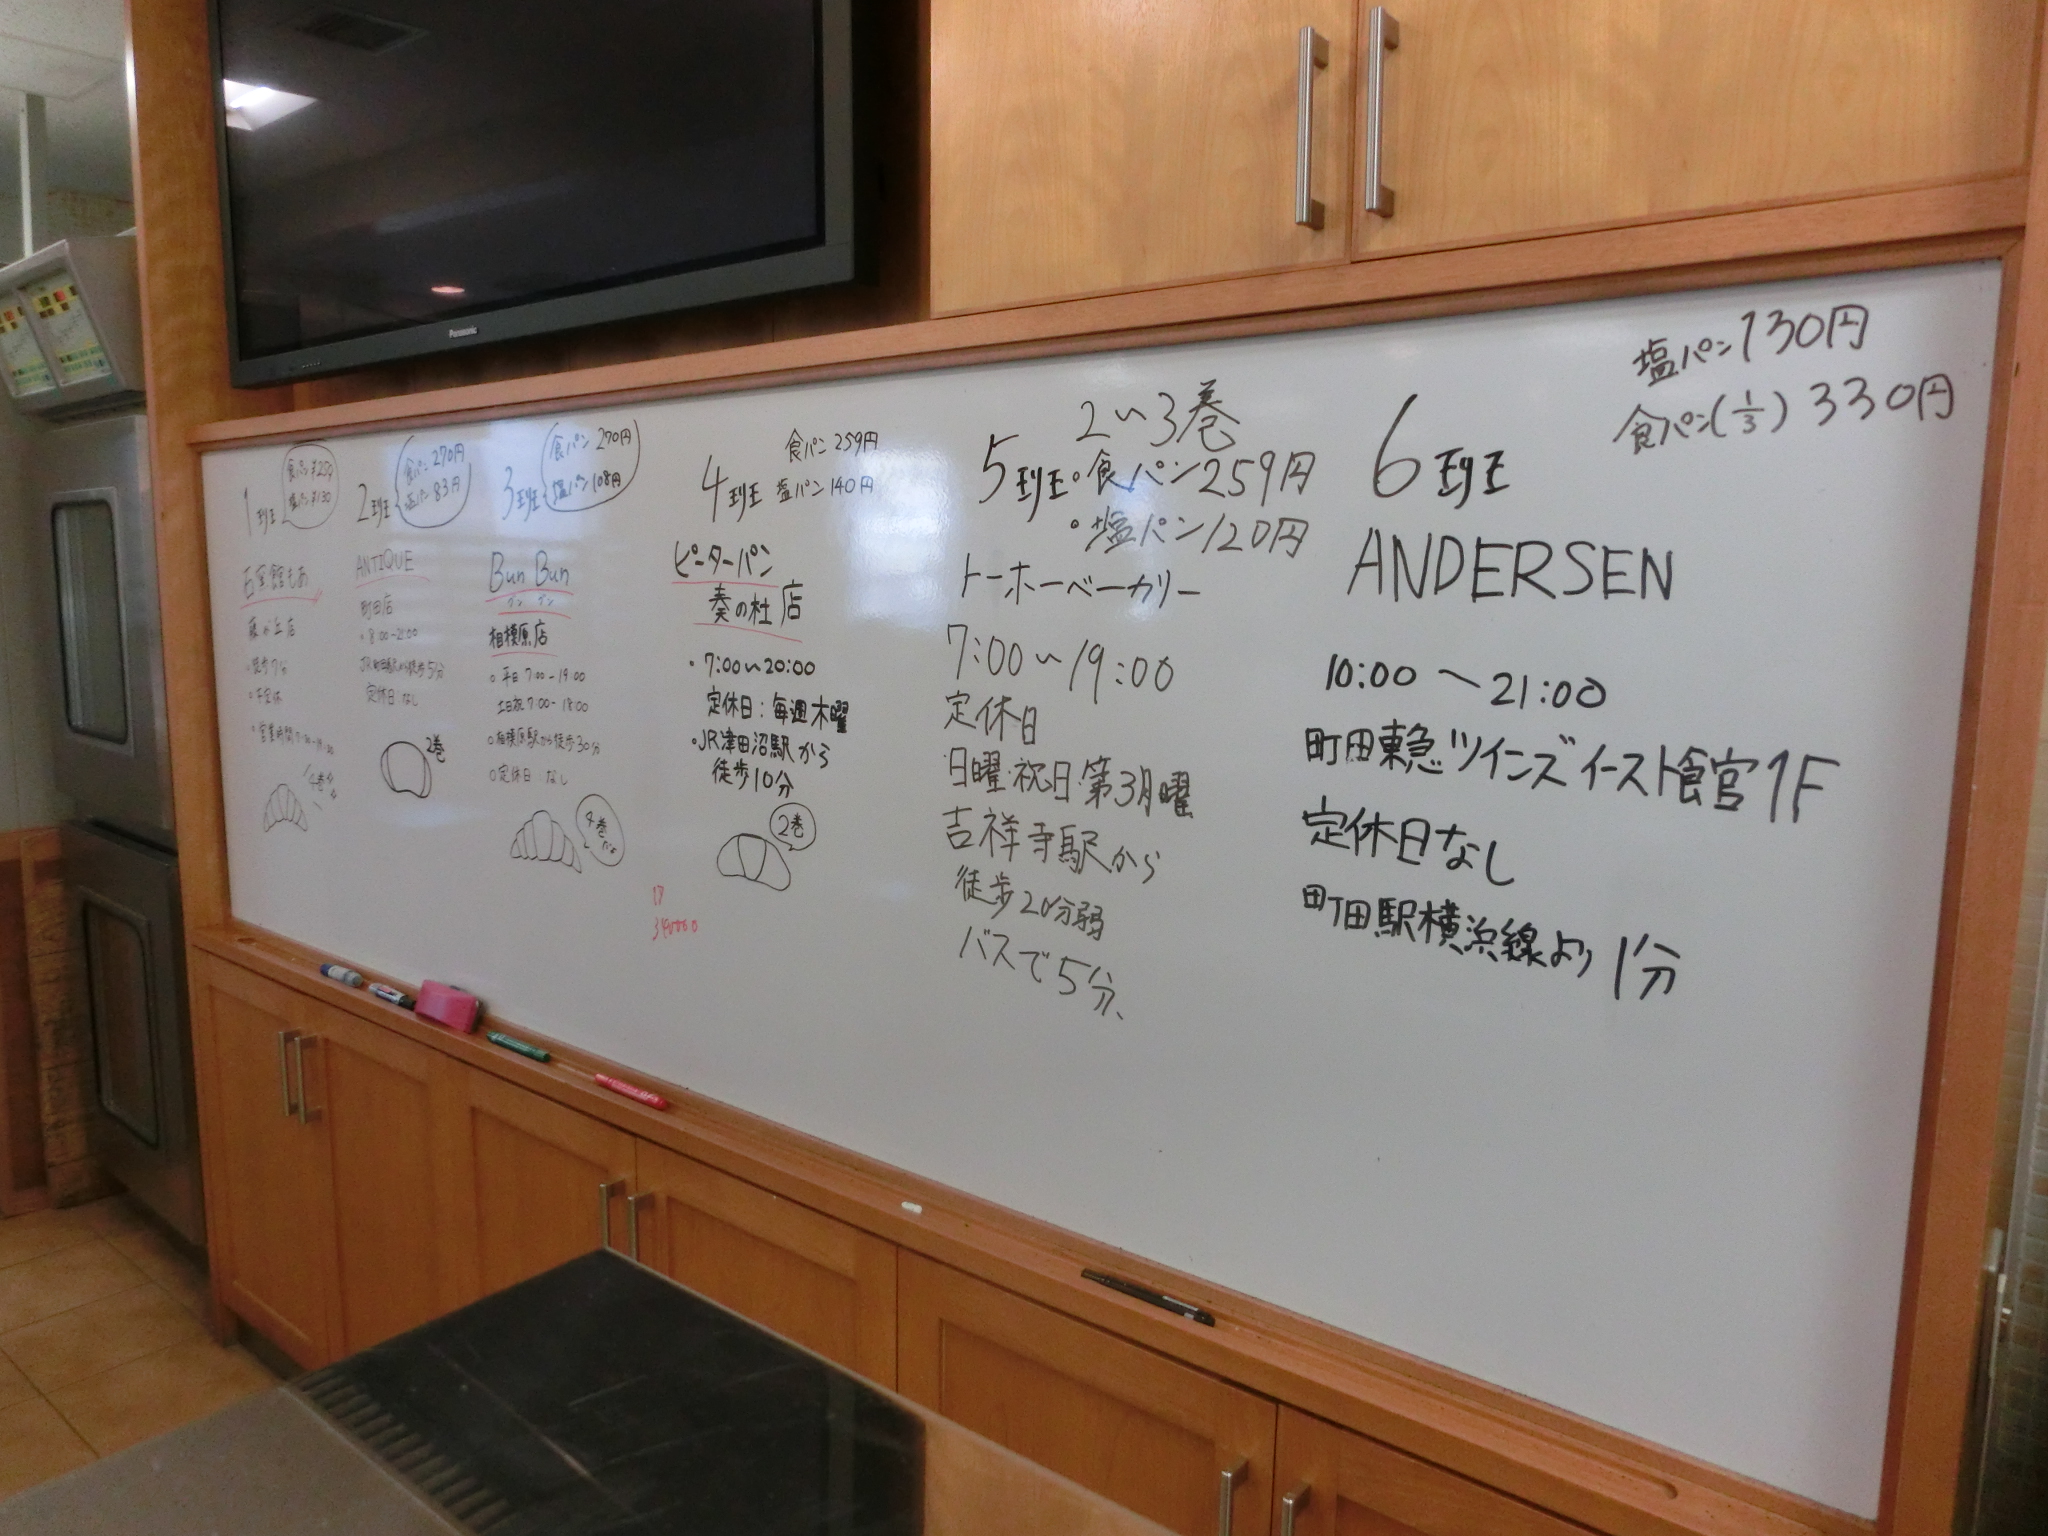 Panasonic
1班
食パン ¥259
塩パン ¥130
石窯館もあ
藤が丘店
・徒歩7分
・不定休
・営業時間
4巻
2班
食パン 270円
塩パン 83円
ANTIQUE
町田店
・8:00-21:00
JR町田駅から徒歩5分
定休日なし
2巻
3班
食パン 270円
塩パン 108円
Bun Bun
ブン ブン
相模原店
○平日 7:00-19:00
土日祝 7:00-18:00
○相模原駅から徒歩30分
○定休日 なし
4巻
4班
食パン 259円
塩パン 140円
ピーターパン
奏の杜店
・7:00〜20:00
定休日:毎週木曜
・JR津田沼駅から
徒歩10分
2巻
17
340000
5班
2〜3巻
・食パン259円
・塩パン120円
トーホーベーカリー
7:00〜19:00
定休日
日曜・祝日・第3月曜
吉祥寺駅から
徒歩20分弱
バスで5分、
6班
塩パン130円
食パン(1/3) 330円
ANDERSEN
10:00〜21:00
町田東急ツインズイースト食官1F
定休日なし
町田駅横浜線より1分